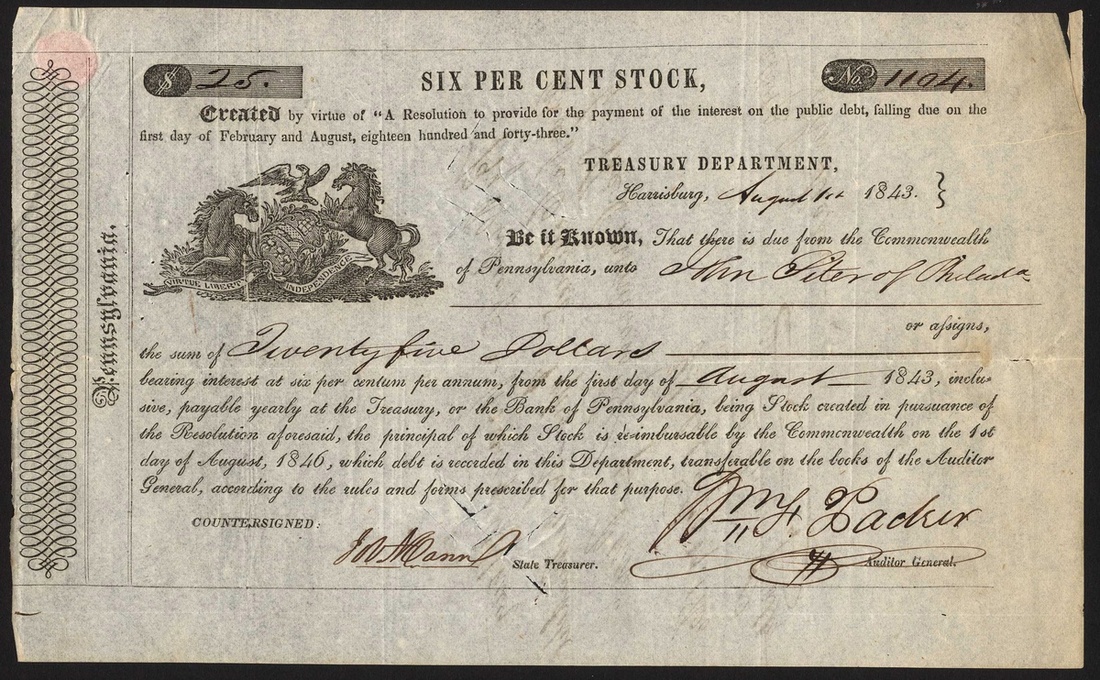 $ 25. SIX PER CENT STOCK, No. 1104.
Created by virtue of "A Resolution to provide for the payment of the interest on the public debt, falling due on the
first day of February and August, eighteen hundred and forty-three."
TREASURY DEPARTMENT,
Harrisburg, August 1st 1843.
Be it Known, That there is due from the Commonwealth
of Pennsylvania, unto of Philada
or assigns,
the sum of Twenty five Dollars
bearing interest at six per centum per annum, from the first day of August 1843, inclu-
sive, payable yearly at the Treasury, or the Bank of Pennsylvania, being Stock created in pursuance of
the Resolution aforesaid, the principal of which Stock is re-imbursable by the Commonwealth on the 1st
day of August, 1846, which debt is recorded in this Department, transferable on the books of the Auditor
General, according to the rules and forms prescribed for that purpose.
COUNTERSIGNED:
Wm F. Packer
State Treasurer. Auditor General.
VIRTUE LIBERTY INDEPENDENCE
Pennsylvania.